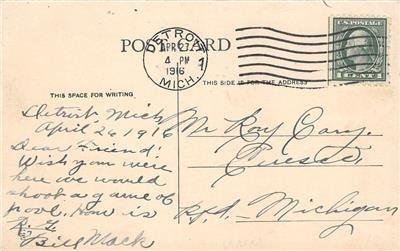 POST CARD
DETROIT, 1
APR 27
4 PM
1916
MICH.
U.S. POSTAGE
1 CENT 1
THIS SPACE FOR WRITING
THIS SIDE IS FOR THE ADDRESS
Detroit, Mich
April 26 1916
Dear Friend:
Wish you were
here we would
shoot a game of
pool. How is
Bill Mack
Mr Roy Cary.
R.f.d. Michigan